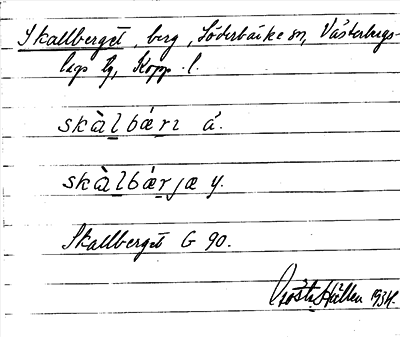 Skallberget, berg, Söderbärke sn, Västerbergs-
lags tg, Kopp. l.
skàlbærı á.
skàlbærjæ y.
Skallberget G 90.
Gösta Hällen 1934.